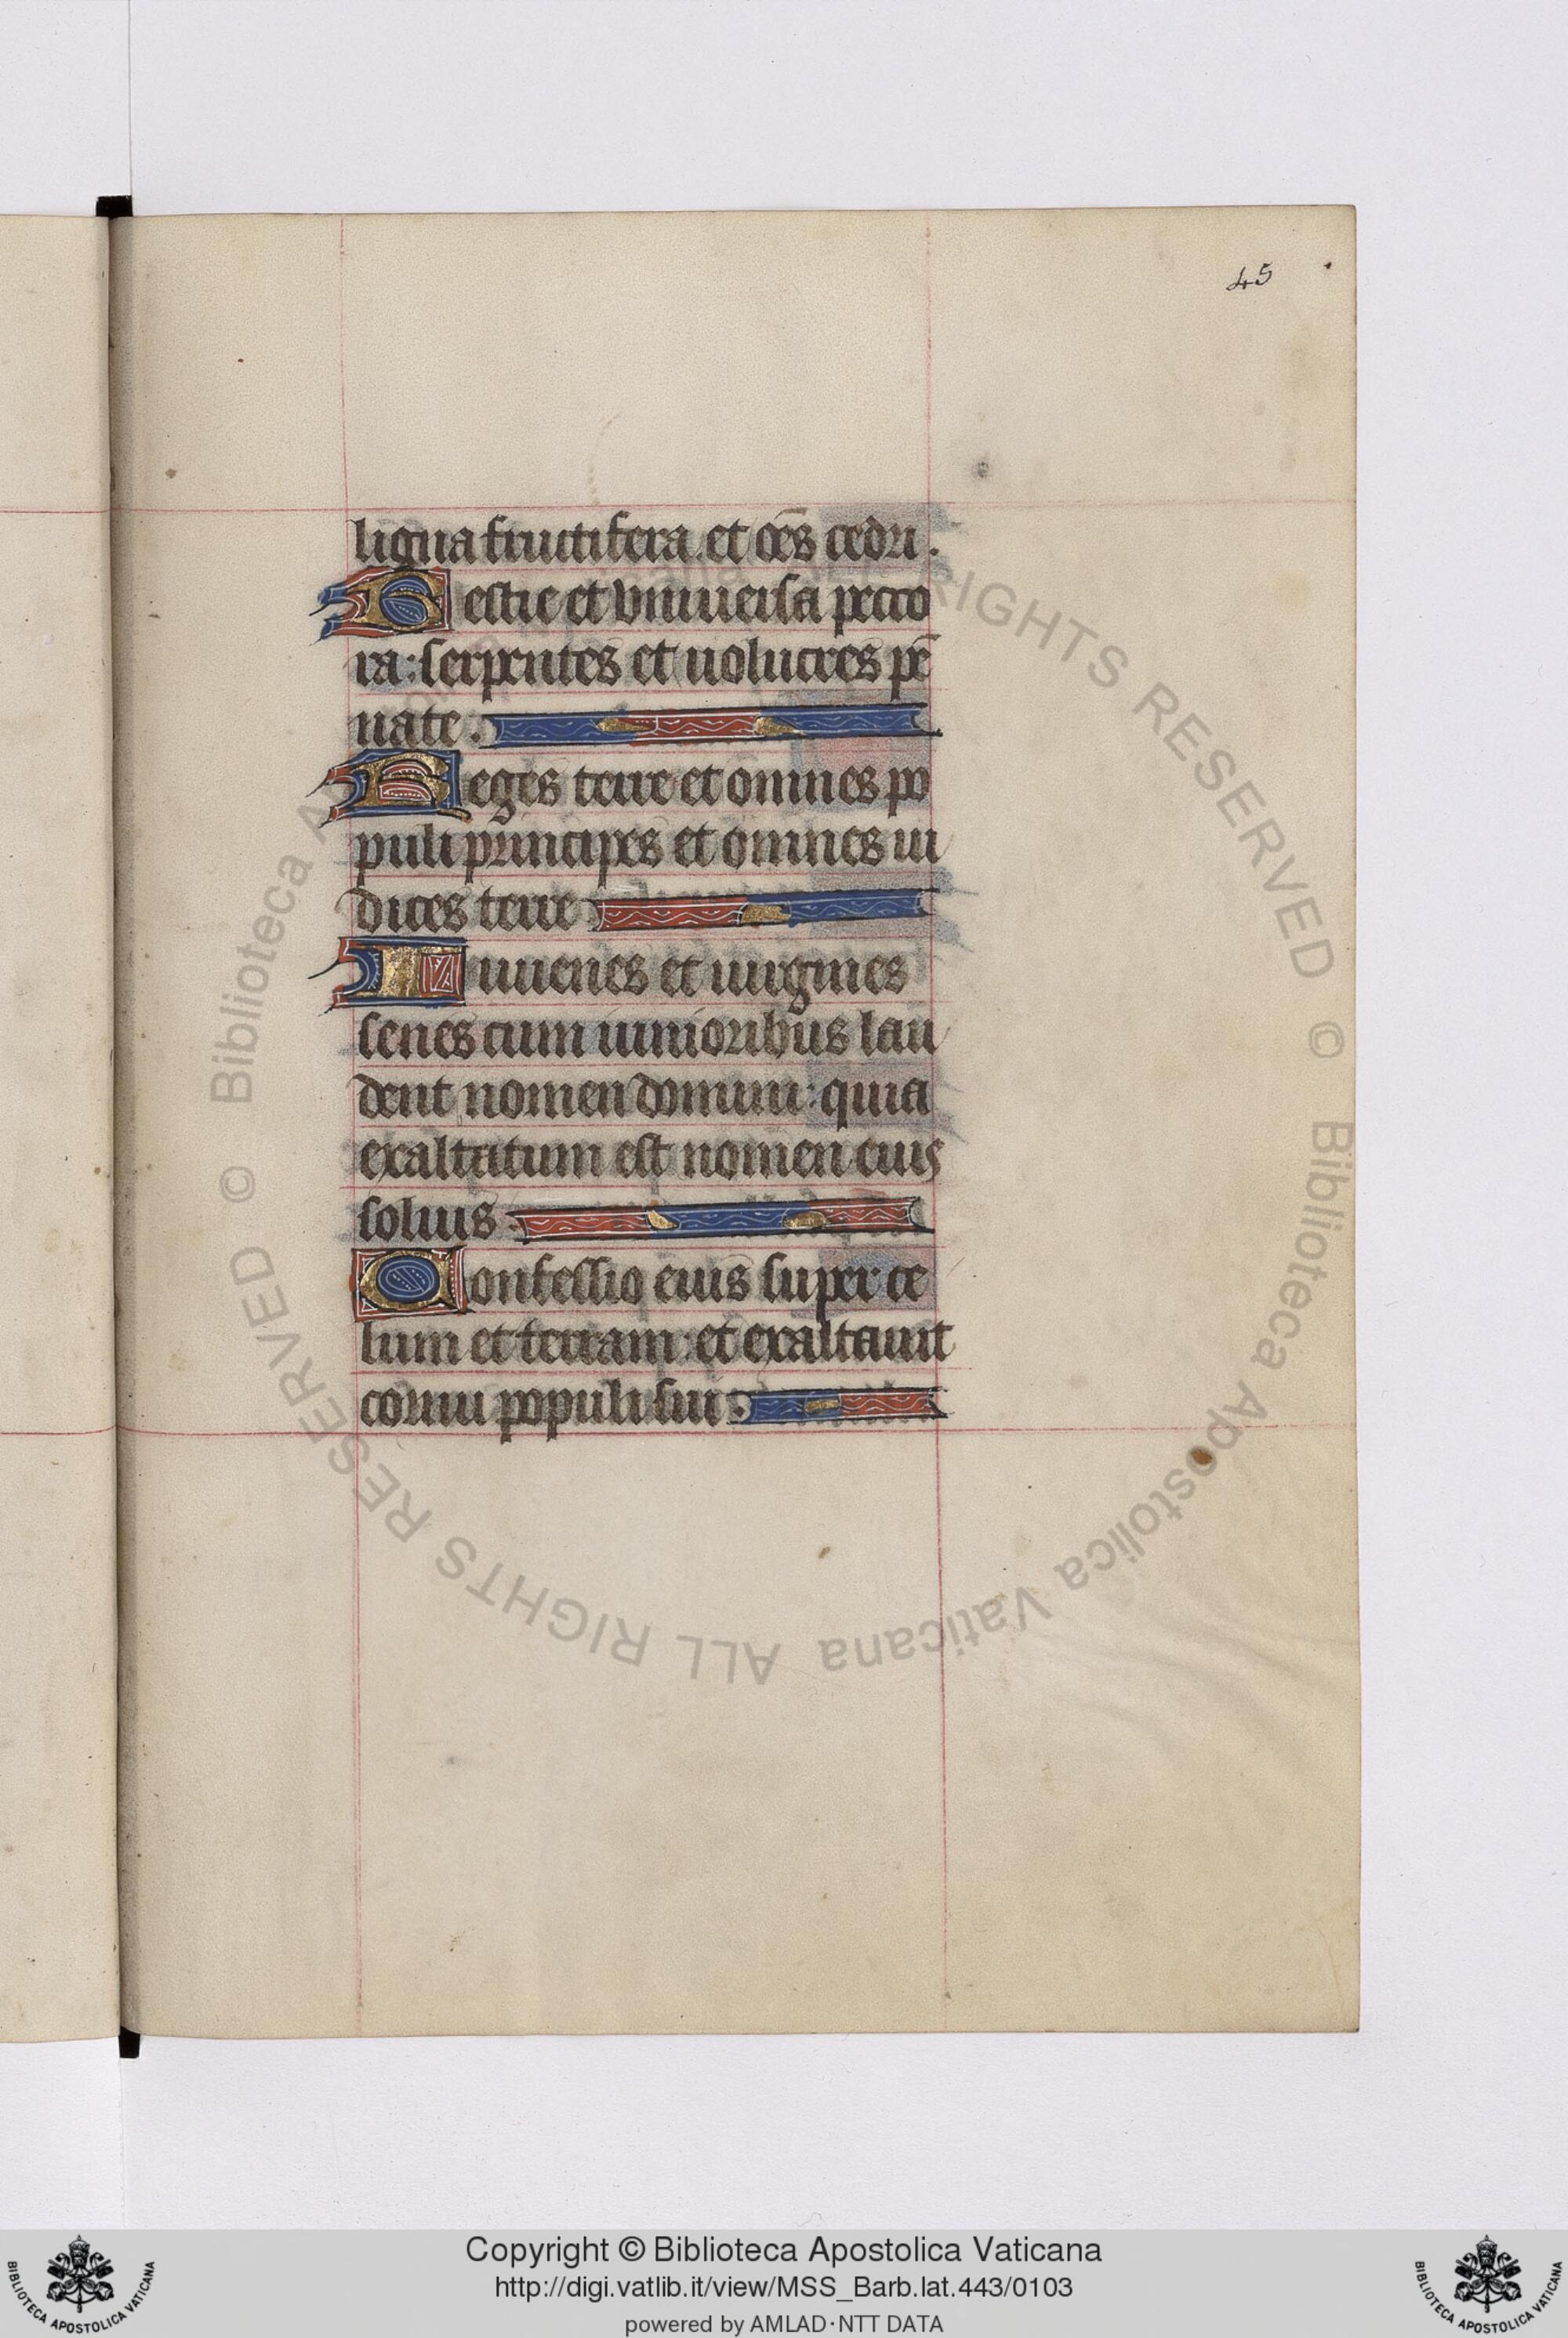 45
ligna fructifera et oēs cedri.
Bestie et vniuersa pecco
ra: serpentes et uolucres pē
nate.
Reges terre et omnes po
puli principes et omnes iu
dices terre
Iuuenes et uirgines
senes cum iunioribus lau
dent nomen domini: quia
exaltatum est nomen eius
solius.
Confessio eius super ce
lum et terram: et exaltauit
cornu populi sui.
© Biblioteca Apostolica Vaticana ALL RIGHTS RESERVED © Biblioteca Apostolica Vaticana ALL RIGHTS RESERVED
Copyright © Biblioteca Apostolica Vaticana
http://digi.vatlib.it/view/MSS_Barb.lat.443/0103
powered by AMLAD·NTT DATA
BIBLIOTECA APOSTOLICA VATICANA
BIBLIOTECA APOSTOLICA VATICANA